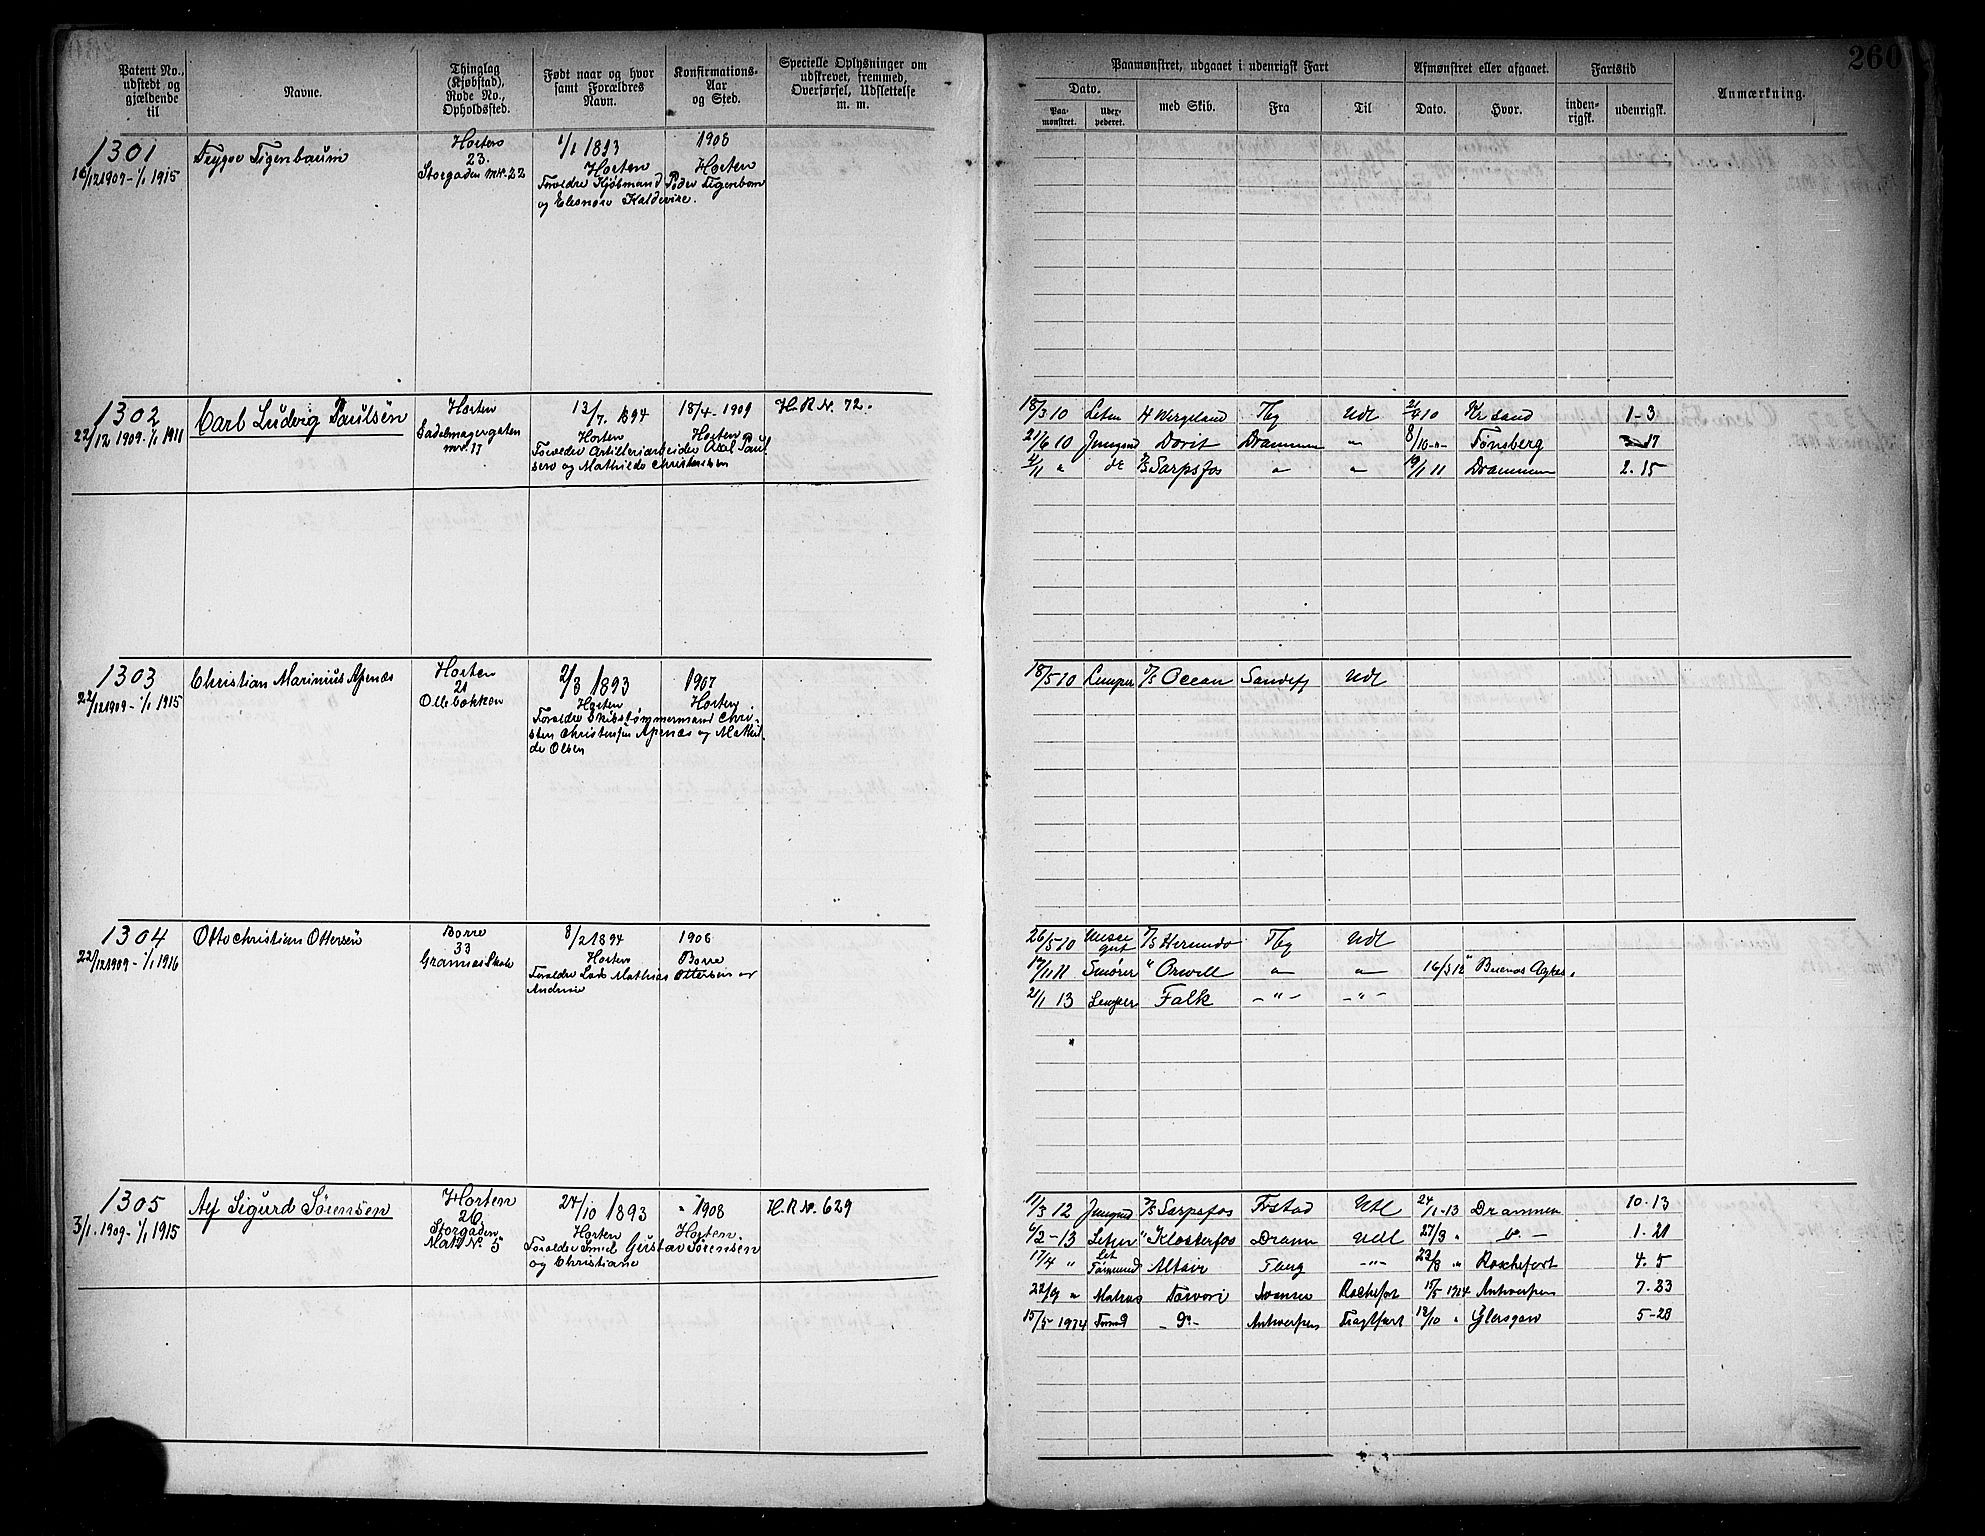 260
Patent No., udstedt og gjældende til
Navne.
Thinglag (Kjøbstad), Rode No., Opholdssted.
Født naar og hvor samt Forældres Navn.
Konfirmations-Aar og Sted.
Specielle Oplysninger om udskrevet, fremmed, Overførsel, Udslettelse m. m.
Paamønstret, udgaaet i udenrigsk Fart
Dato.
Paa-mønstret.
med Skib.
Fra
Til
Afmønstret eller afgaaet.
Dato.
Hvor.
Fartstid
inden-rigsk.
udenrigsk.
Anmærkning.
1301
16/12 1909 - 1/1 1915
Horten
23.
Storgaden nr. 22
1/1 1893
Horten
1908
Horten
og Eleonore
1302
22/12 1909 - 1/1 1911
Carl Ludvig Paulsen
Horten
Sadelmagergaten
nr. 17
13/7. 1894
Horten
Forældre Artilleriarbeider Axel Paul-
sen og Mathilde Christensen
18/4 - 1909
Horten
H.R.Nr. 72.
18/3 10 H Wergeland Tbg Udl 10 Kr sand 1-3
21/6 10 Jungmd Dorit Drammen " 8/10 - " - Tønsberg 17
" D/S Sarpsfos " " 11 Drammen 2. 15
1303
22/12 1909 - 1/1 1915
Christian Marinius Apenæs
Horten
21
Ollebakken
2/3 1893
Horten
Forældre Skibstømmermand Chri-
sten Christensen Apenæs og Mathil-
de Olsen
1907
Horten
18/5 10 Lemper D/S Ocean Sandefj Udl
1304
22/12 1909 - 1/1 1916
Otto Christian Ottersen
Borre
33
Grannes Skole
8/2 1894
Horten
Forældre Lars Mathias Ottersen og
Andrine
1908
Borre
26/5 10 D/S Tbg Udl
17/11 11 Smører " Orwell " " 16/3 12 " Buenos Ayres.
2/1 13 Lemper Falk - " - - " -
1305
3/1. 1909 - 1/1 1915
Alf Sigurd Sørensen
Horten
26
Storgaden
Matr N. 5
24/10 1893
Horten
Forældre Emil Gustav Sørensen
og Christiane
" 1908
Horten.
H.R.Nr. 629
11/3 12 Jungmd D/S Sarpsfos Frstad Utl 24/1 - 13 Drammen 10. 13
6/2 - 13 Letm " Klosterfos Dramn Udl 27/3 " Do - 1. 21
17/4 " Altair Tberg - " - 22/8 " Rochefort 4. 5
22/9 " Matros Rochefort 15/5 1914 Antwerpen 7. 23
15/5 - 1914 - Do - Antwerpen Fragtfart /10 " 5 - 28